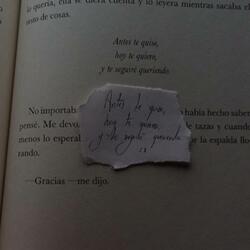 la quería, ella se diera cuenta y lo leyera mientras sacaba el
resto de cosas.
Antes te quise,
hoy te quiero,
y te seguiré queriendo.
Antes te quise,
hoy te quiero
y te seguiré queriendo
No importaba
había hecho saber
pensé. Me devo
de tazas y cuando
menos lo esperab
por la espalda llo
rando.
—Gracias —me dijo.